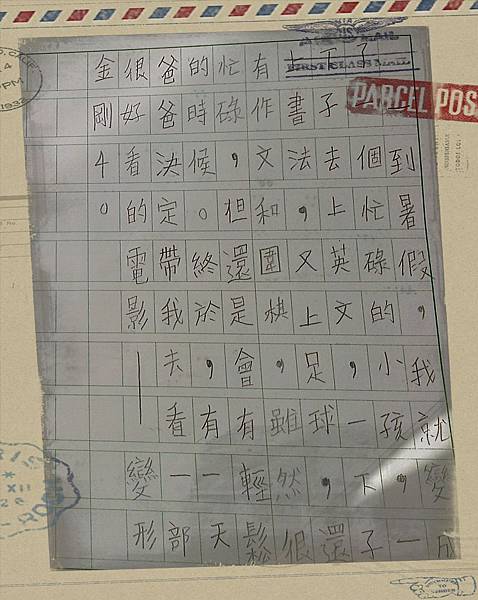 到暑假,我就變成
個忙碌的小孩子,一
下子去上英文,一下子
上書法,又上足球,還
有作文和圍棋,雖然很
忙碌,但還是會有輕鬆
的時候。終於,有一天
爸爸決定帶我去看一部
很好看的電影—變形
金剛4。
FIRST CLASS MAIL
PARCEL POS